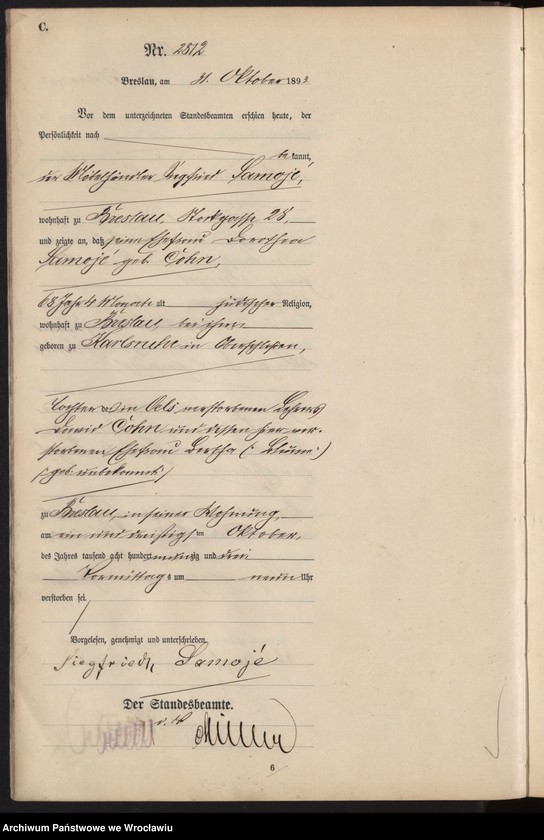 C.
Nr. 2812
Breslau, am 31. Oktober 1893
Vor dem unterzeichneten Standesbeamten erschien heute, der
Persönlichkeit nach
be kannt,
der Möbelhändler Siegfried Samojé,
wohnhaft zu Breslau, 28,
und zeigte an, daß seine Ehefrau Dorothea
Samojé geb. Cohn,
68 Jahr 4 Monate alt jüdischer Religion,
wohnhaft zu Breslau bei ihm
geboren zu Karlsruhe in Oberschlesien,
Tochter des in Oels verstorbenen Lehrers
David Cohn und dessen hier ver-
storbenen Ehefrau Bertha (: Blume :)
/: geb. unbekannt :/
zu Breslau, in seiner Wohnung,
am ein und dreißigsten Oktober,
des Jahres tausend acht hundert neunzig und drei
Vormittags um neun Uhr
verstorben sei.
Vorgelesen, genehmigt und unterschrieben
Siegfried Samojé
Der Standesbeamte.
6
Archiwum Państwowe we Wrocławiu